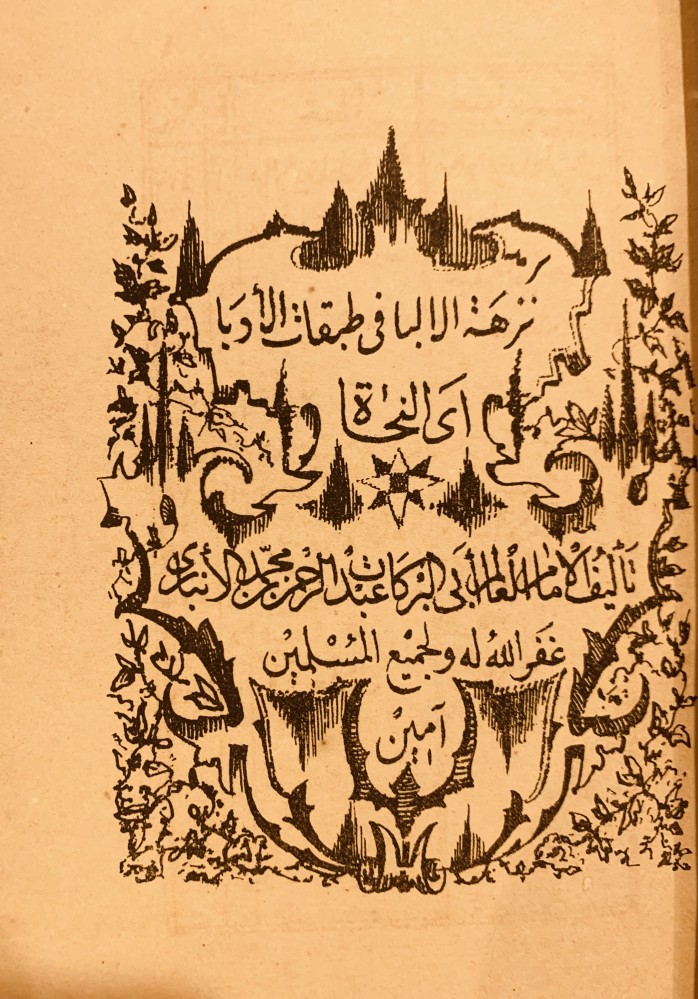 نزهة الالبا في طبقات الأدبا
أى النحاة
تأليف الامام العالم أبى البركات عبد الرحمن محمد الأنبارى
غفر الله له ولجميع المسلمين
آمين